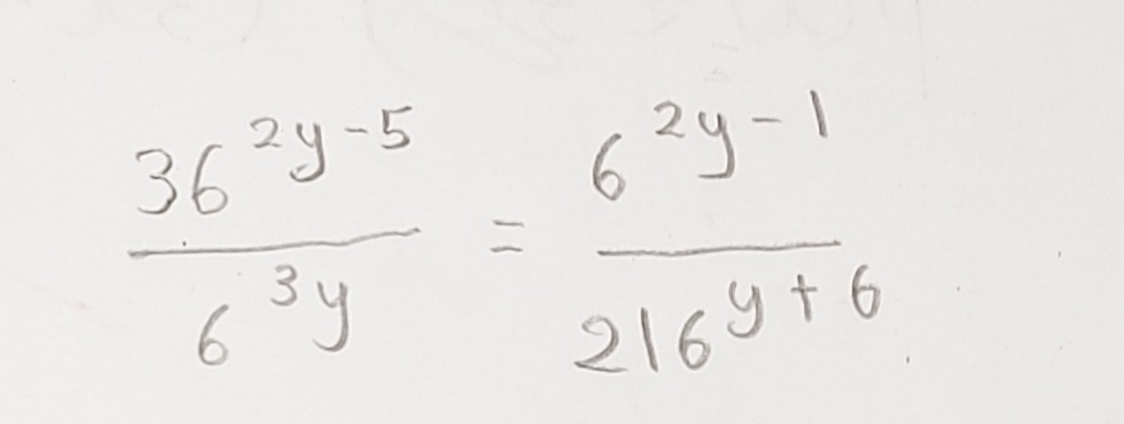 36^{2y-5} / 6^{3y} = 6^{2y-1} / 216^{y+6}